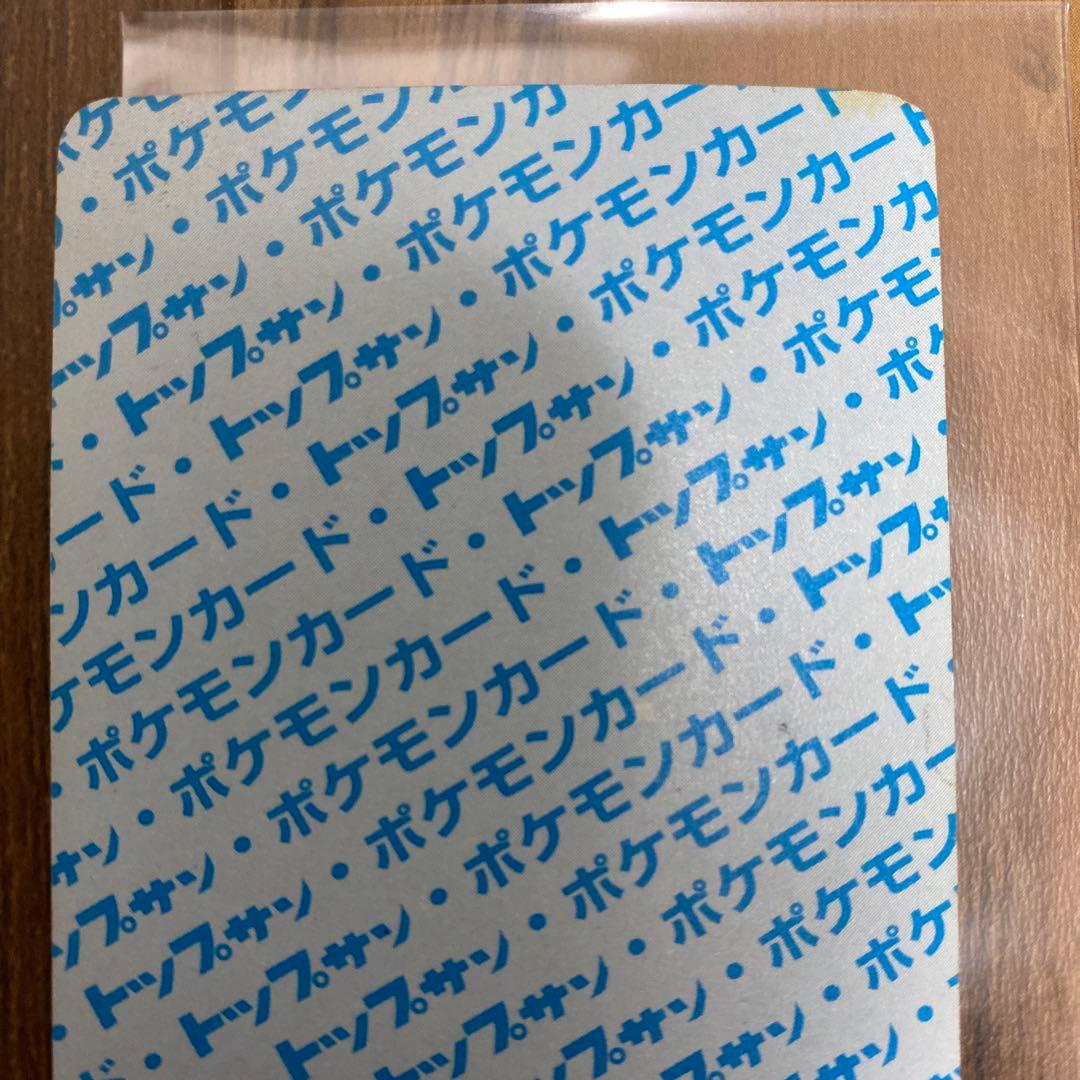 ポケモ
・ポケモン
プサン・ポケモンカ
トップサン・ポケモンカ
・トップサン・ポケモンカー
ード・トップサン・ポケモンカード
ンカード・トップサン・ポケモンカード
ケモンカード・トップサン・ポケモンカ
・ポケモンカード・トップサン・ポケモン
サン・ポケモンカード・トップサン・ポケ
ップサン・ポケモンカード・トップサン・
トップサン・ポケモンカード・トップサ
・トップサン・ポケモンカード・トッ
ド・トップサン・ポケモンカード・
トップサン・ポケモンカー
トップサン・ポケモン
プサン・ポケ
サン・